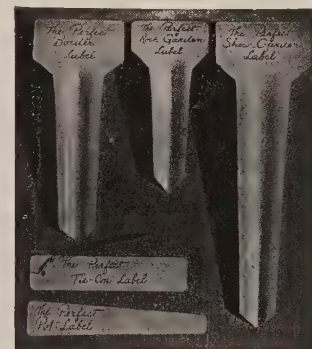 The Perfect
Border
Label
The Perfect
Rock Garden
Label
The Perfect
Show Garden
Label
The Perfect
Tie-On Label
The Perfect
Pot-Label